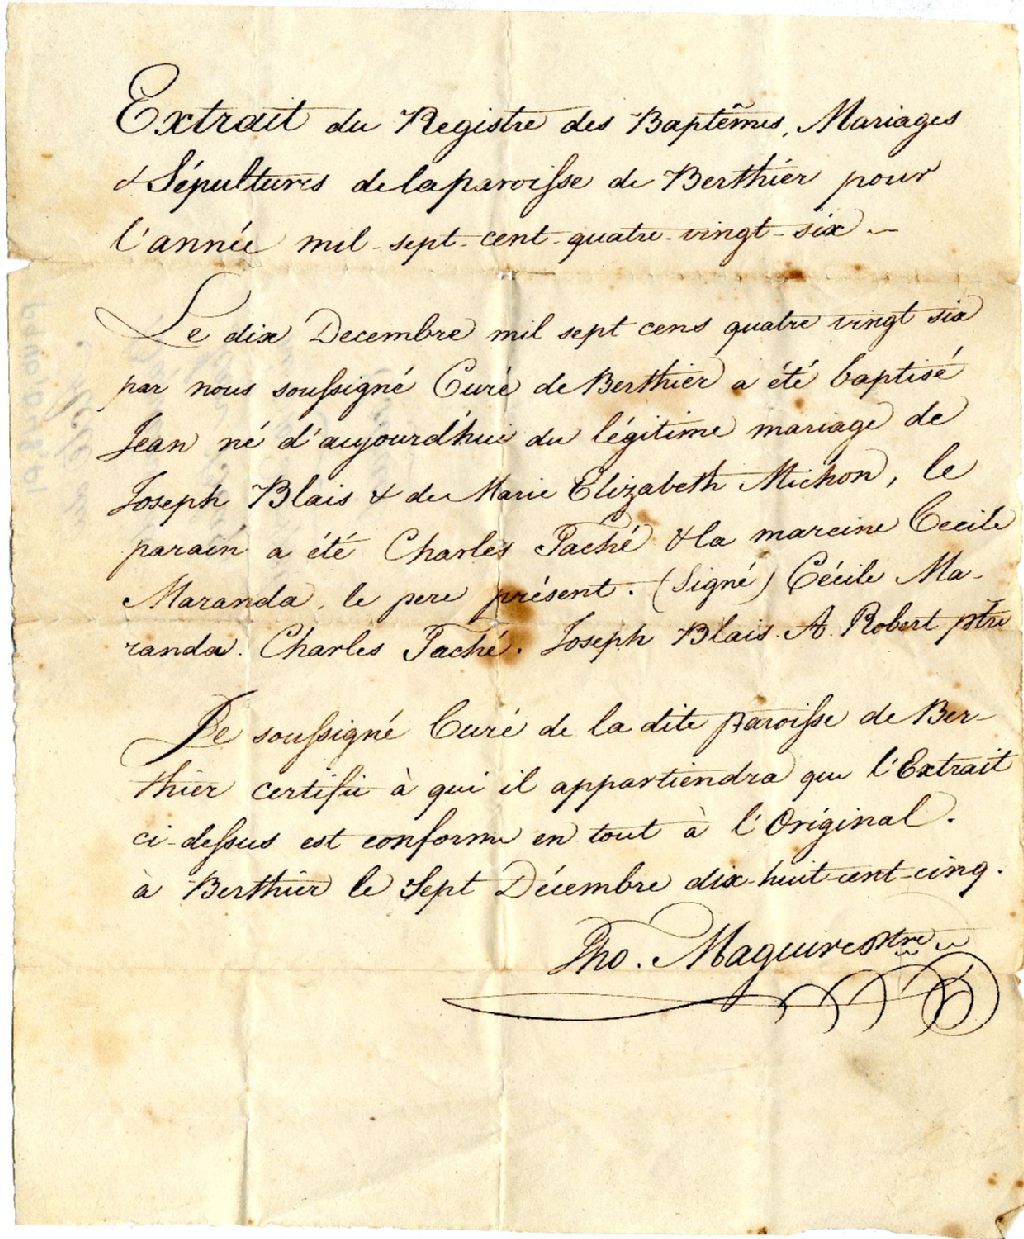 Extrait du Registre des Baptêmes, Mariages
& Sépultures de la paroisse de Berthier pour
l'année mil-sept-cent-quatre-vingt-six
Le dix Decembre mil sept cens quatre vingt six
par nous soussigné Curé de Berthier a été baptisé
Jean né d'aujourd'hui du légitime mariage de
Joseph Blais & de Marie Elizabeth Michon, le
parain a été Charles Taché & la mareine Cecile
Maranda, le pere présent. (Signé) Cécile Ma-
randa. Charles Taché. Joseph Blais. A. Robert ptre
Je soussigné Curé de la dite paroisse de Ber-
thier certifie à qui il appartiendra que l'Extrait
ci-dessus est conforme en tout à l'Original.
à Berthier le Sept Décembre dix-huit-cent-cinq.
Tho. Maguire Ptre